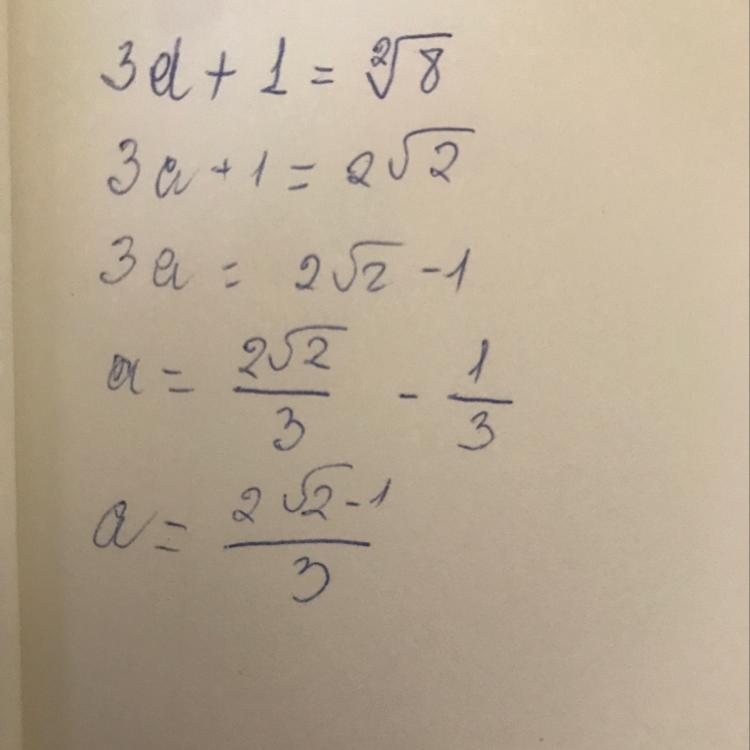 3a + 1 = ²√8
3a + 1 = 2√2
3a = 2√2 - 1
a = 2√2/3 - 1/3
a = (2√2 - 1)/3